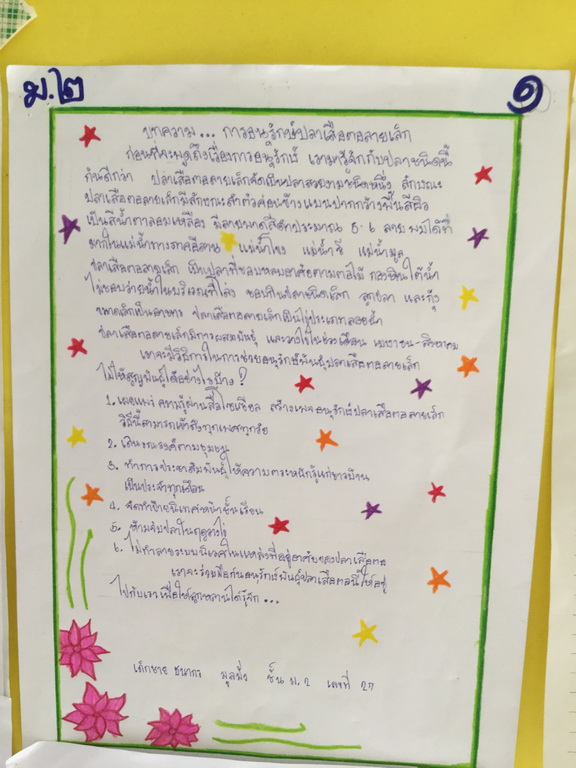 ม.๒
๑
บทความ... การอนุรักษ์ปลาเสือตอลายเล็ก
ก่อนที่จะพูดถึงเรื่องการอนุรักษ์ เรามารู้จักกับปลาชนิดนี้
กันดีกว่า ปลาเสือตอลายเล็กจัดเป็นปลาสวยงามชนิดหนึ่ง ลักษณะ
ปลาเสือตอลายเล็กมีลักษณะลำตัวค่อนข้างแบนปากกว้างพื้นสีผิว
เป็นสีน้ำตาลอมเหลือง มีลายพาดสีดำประมาณ 5-6 ลาย พบได้ที่
ยากในแม่น้ำทางภาคอีสาน แม่น้ำโขง แม่น้ำชี แม่น้ำมูล
ปลาเสือตอลายเล็ก เป็นปลาที่ชอบหลบอาศัยตามตอไม้ กองหินใต้น้ำ
ไม่ชอบว่ายน้ำในบริเวณที่โล่ง ชอบกินปลาขนิดเล็ก ลูกปลา และกุ้ง
ขนาดเล็กเป็นอาหาร ปลาเสือตอลายเล็กเป็นไข่ประเภทลอยน้ำ
ปลาเสือตอลายเล็กมีการผสมพันธุ์ และวางไข่ในช่วงเดือน เมษายน-สิงหาคม
เราจะมีวิธีการในการช่วยอนุรักษ์พันธุ์ปลาเสือตอลายเล็ก
ไม่ให้สูญพันธุ์ได้อย่างไรบ้าง?
1. เผยแพร่ความรู้ผ่านสื่อโซเชียล สร้างเพจอนุรักษ์ปลาเสือตอลายเล็ก
วิธีนี้สามารถเข้าถึงทุกเพศทุกวัย
2. เดินรณรงค์ตามชุมชน
3. ทำการประชาสัมพันธ์ให้ความตระหนักรู้แก่ชาวบ้าน
เป็นประจำทุกเดือน
4. จัดทำป้ายนิเทศหน้าชั้นเรียน
5. ห้ามจับปลาในฤดูวางไข่
6. ไม่ทำลายระบบนิเวศในแหล่งที่อยู่อาศัยของปลาเสือตอ
เราจะร่วมมือกันอนุรักษ์พันธุ์ปลาเสือตอนี้ให้อยู่
ไปกับเราเพื่อให้ลูกหลานได้รู้จัก...
เด็กชาย ธนากร มูลมั่ง ชั้น ม.2 เลขที่ 27